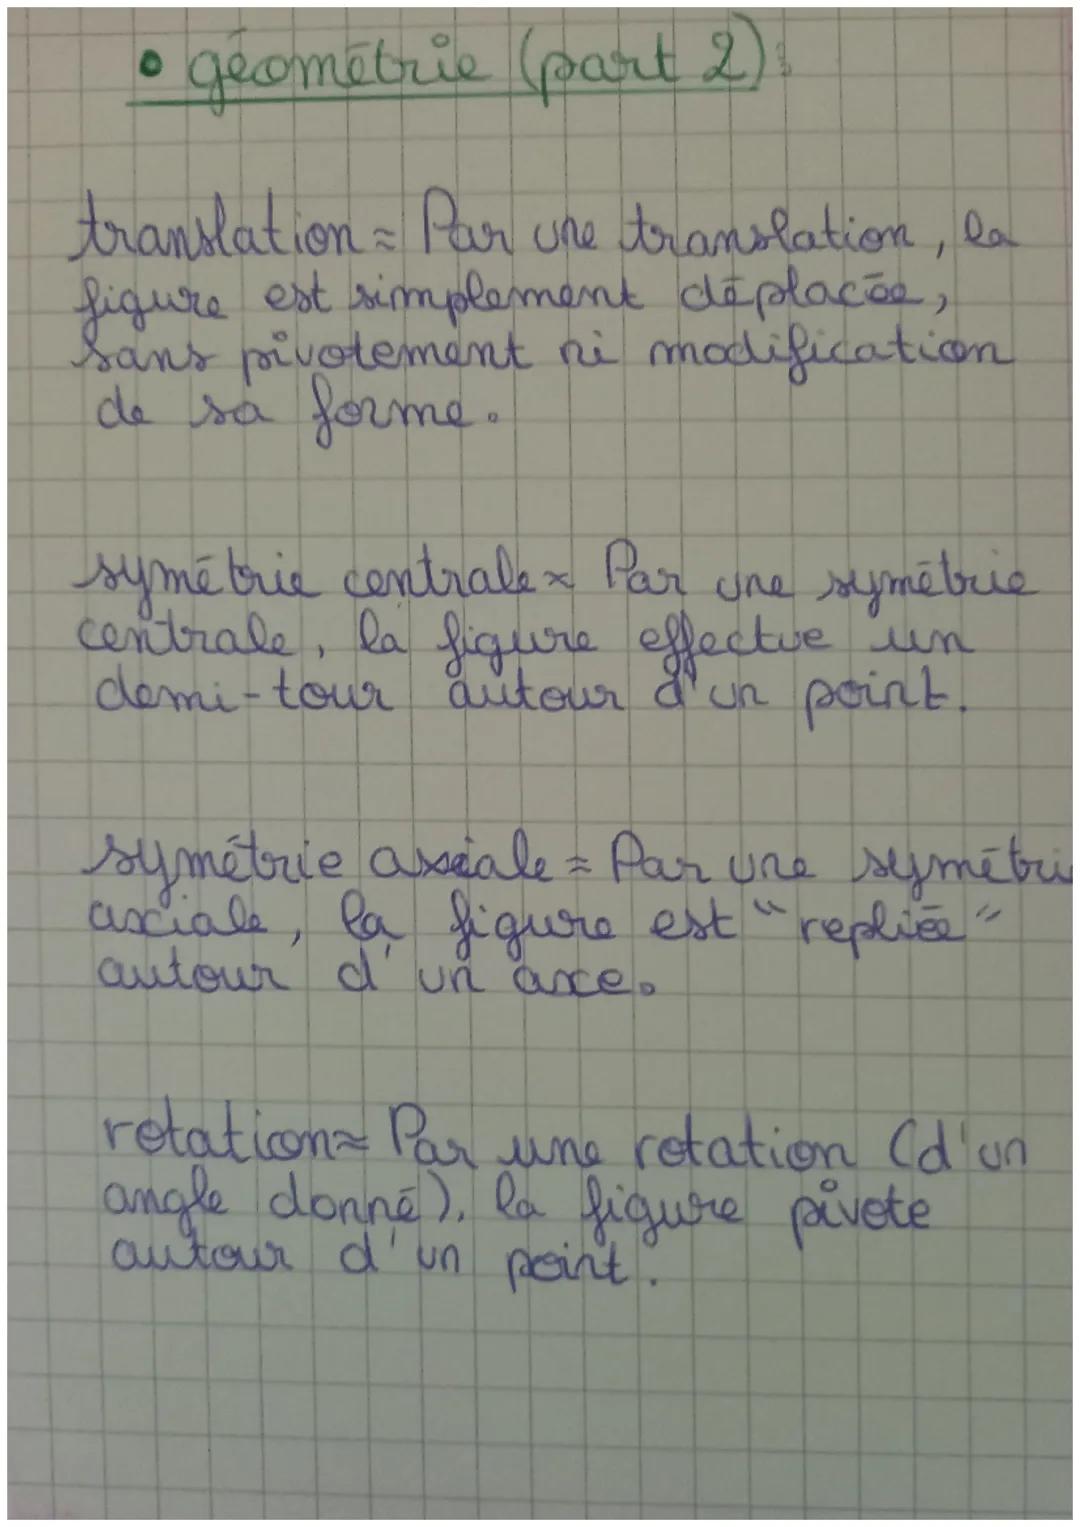 • géométrie (part 2):
translation = Par une translation, la
figure est simplement déplacée,
sans pivotement ni modification
de sa forme.
symétrie centrale = Par une symétrie
centrale, la figure effectue un
demi-tour autour d'un point.
symétrie axiale = Par une symétri
axiale, la figure est "repliée"
autour d'un axe.
rotation = Par une rotation (d'un
angle donné), la figure pivote
autour d'un point.